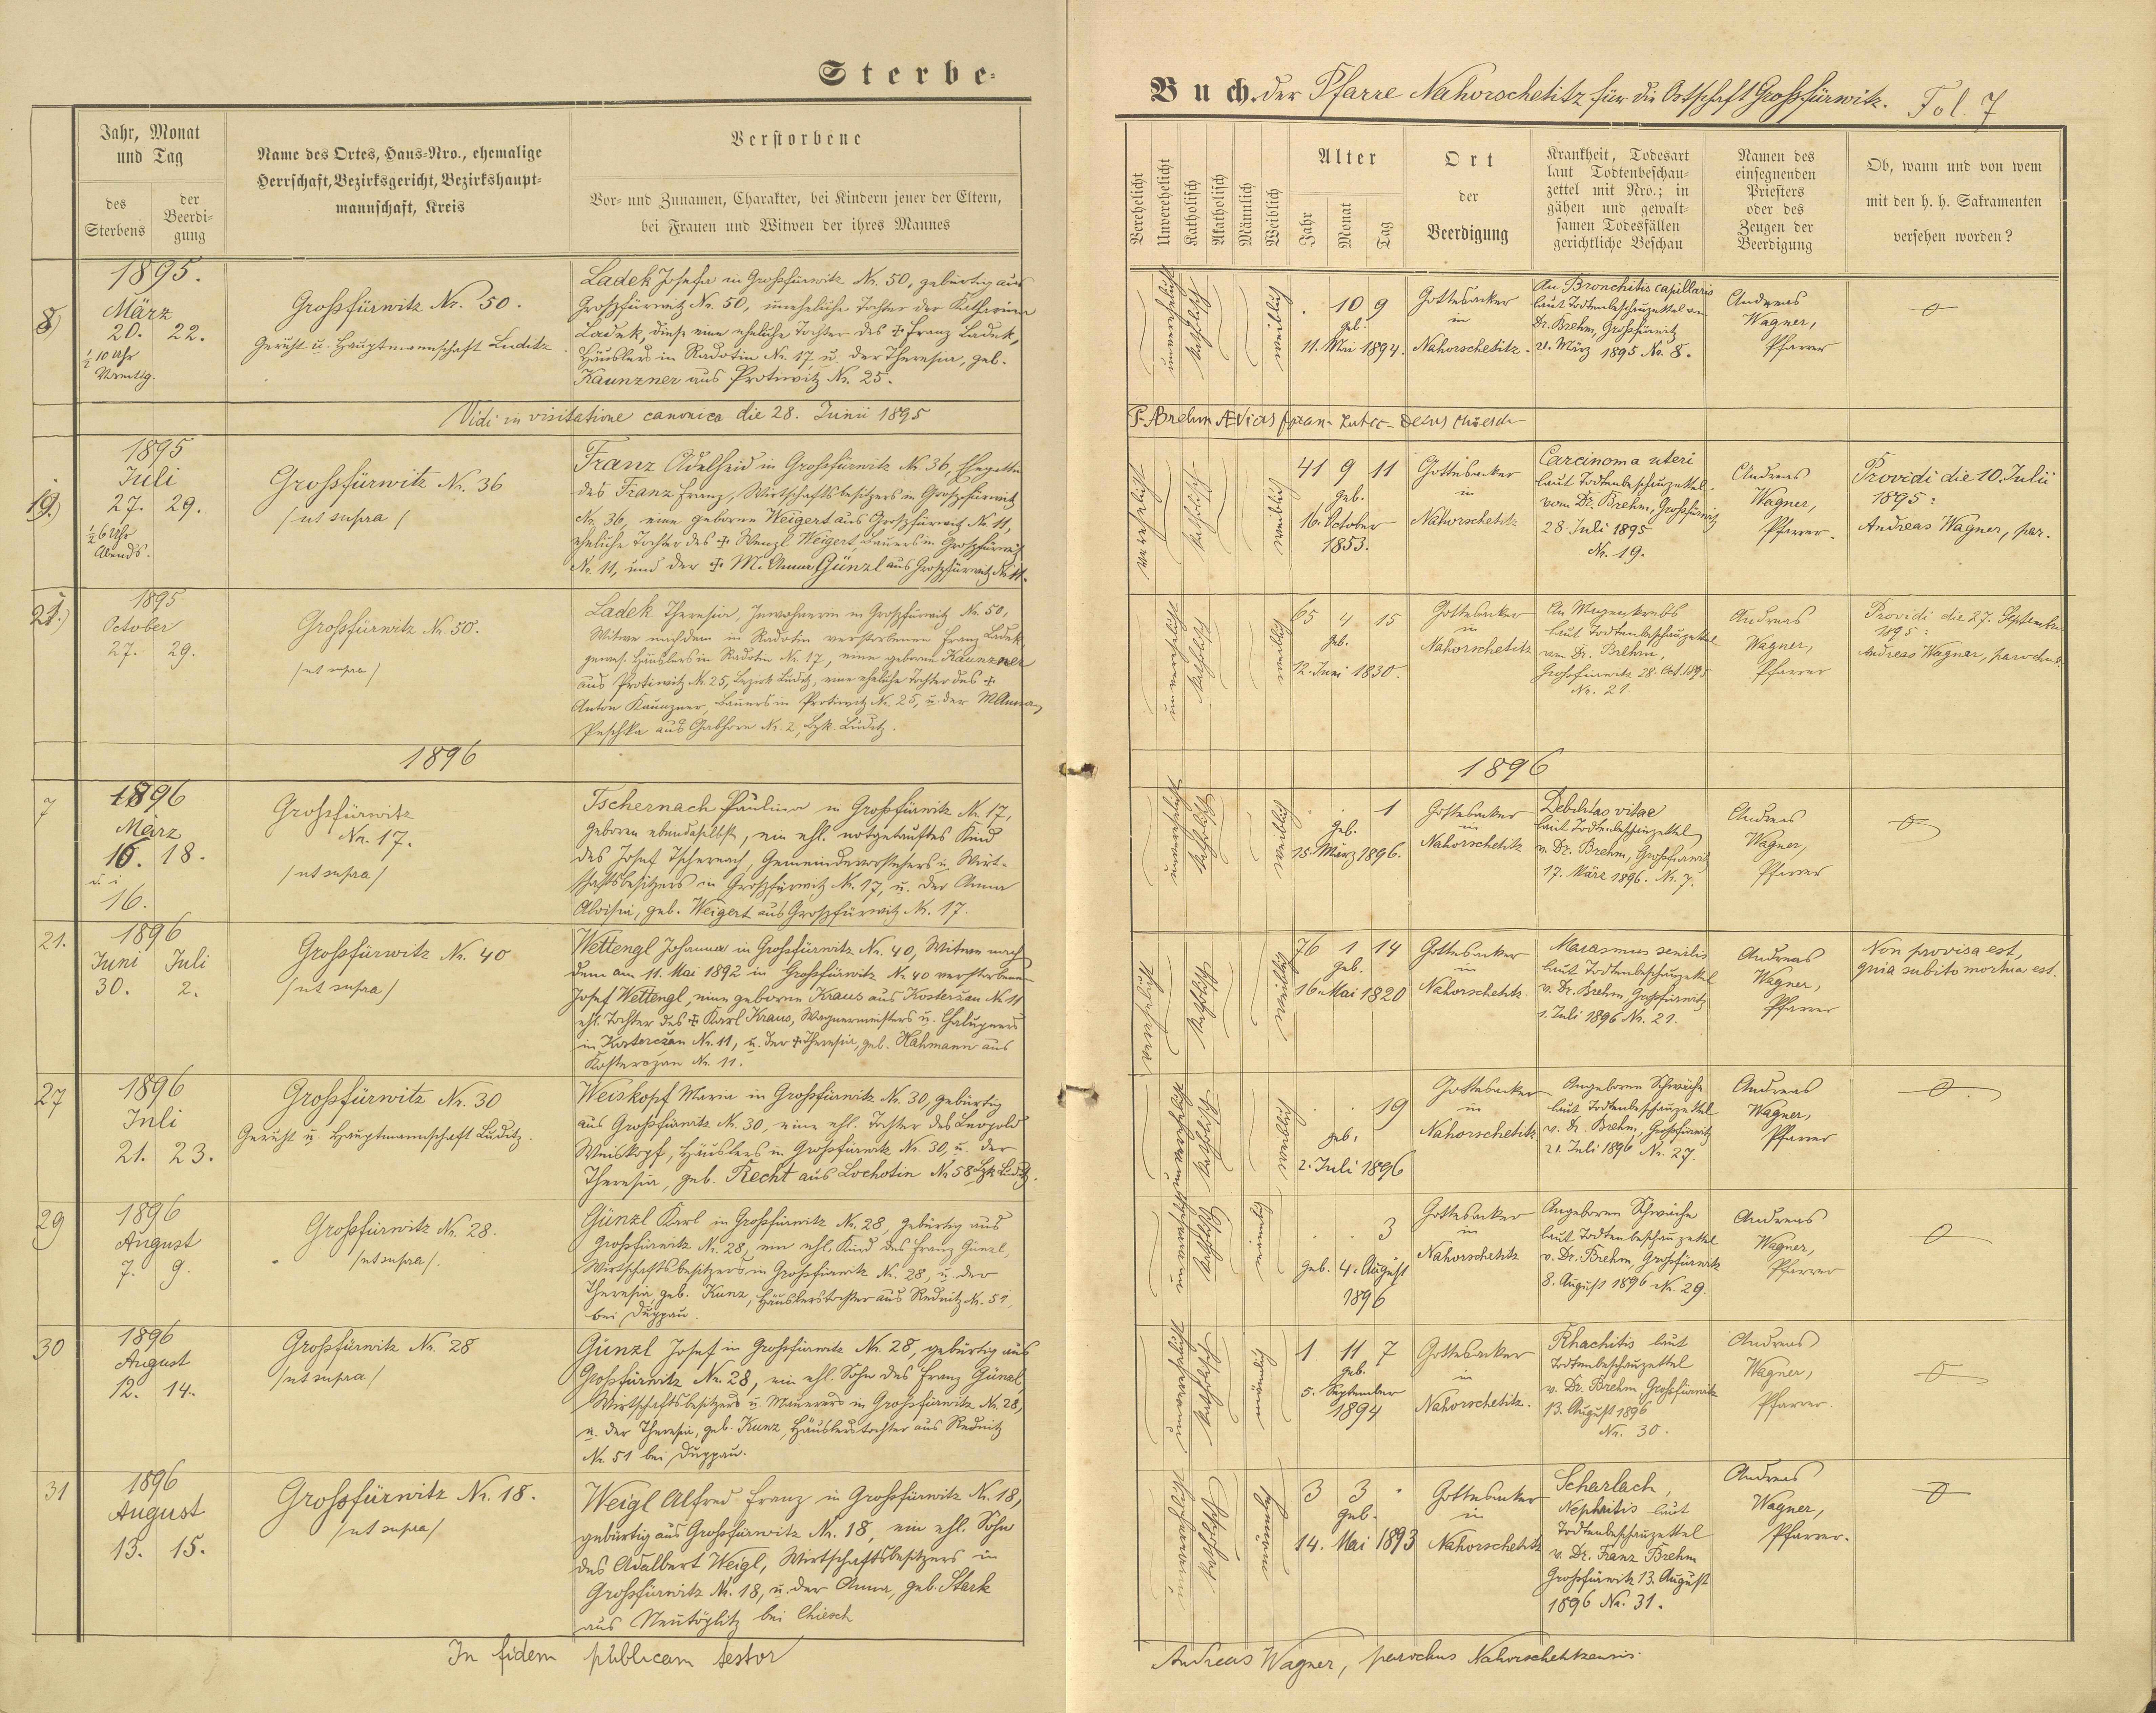 Sterbe-
Jahr, Monat
und Tag
des
Sterbens
der
Beerdi-
gung
Name des Ortes, Haus-Nro., ehemalige
Herrschaft, Bezirksgericht, Bezirkshaupt-
mannschaft, Kreis
Verstorbene
Vor- und Zunamen, Charakter, bei Kindern jener der Eltern,
bei Frauen und Witwen der ihres Mannes
8)
1895.
März
20. 22.
½ 10 Uhr
Vormittg.
Großfürwitz Nr. 50.
Gericht u. Hauptmannschaft Luditz
Ladek Josefa in Großfürwitz Nr. 50, gebürtig aus
Großfürwitz Nr. 50, uneheliche Tochter der Katharina
Ladek, diese eine eheliche Tochter des ✝ Franz Ladek,
Häuslers in Radotin Nr. 17, u. der Theresia, geb.
Kaunzner aus Protiwitz Nr. 25.
Vidi in visitatione canonica die 28. Junii 1895
19.)
1895
Juli
27. 29.
½ 6 Uhr
Abends.
Großfürwitz Nr. 36
/ut supra/
Franz Adelheid in Großfürwitz Nr. 36, Ehegattin
des Franz Franz, Wirtschaftsbesitzers in Großfürwitz
Nr. 36, eine geborne Weigert aus Großfürwitz Nr. 11,
eheliche Tochter des ✝ Wenzl Weigert, Bauers in Großfürwitz
Nr. 11, und der ✝ M. Anna Günzl aus Großfürwitz Nr. 11.
21.)
1895
October
27. 29.
Großfürwitz Nr. 50.
/ut supra/
Ladek Theresia, Inwohnerin in Großfürwitz Nr. 50,
Witwe nach dem in Radotin verstorbenen Franz Ladek,
gewes. Häuslers in Radotin Nr. 17, eine geborne Kaunzner
aus Protiwitz Nr. 25, Bezirk Luditz, eine eheliche Tochter des ✝
Anton Kaunzner, Bauers in Protiwitz Nr. 25, u. der M. Anna
Peschka aus Gabhorn Nr. 2, Bzk. Luditz.
1896
7
1896
März
16. 18.
16.
Großfürwitz
Nr. 17.
/ut supra/
Tschernach Paulina in Großfürwitz Nr. 17,
geboren ebendaselbst, ein ehl. notgetauftes Kind
des Josef Tschernach, Gemeindevorstehers u. Wirt-
schaftsbesitzers in Großfürwitz Nr. 17, u. der Anna
Aloisia, geb. Weigert aus Großfürwitz Nr. 17.
21.
1896
Juni Juli
30. 2.
Großfürwitz Nr. 40
/ut supra/
Wettengl Johanna in Großfürwitz Nr. 40, Witwe nach
dem am 11. Mai 1892 in Großfürwitz Nr. 40 verstorbenen
Josef Wettengl, eine geborne Kraus aus Kosterzan Nr. 11
ehl. Tochter des ✝ Karl Kraus, Wagnermeisters u. Chalupners
in Kosterczan Nr. 11, u. der ✝ Theresia, geb. Nahmann aus
Kosterczan Nr. 11.
27
1896
Juli
21. 23.
Großfürwitz Nr. 30
Gericht u. Hauptmannschaft Luditz.
Weiskopf Maria in Großfürwitz Nr. 30, gebürtig
aus Großfürwitz Nr. 30, eine ehl. Tochter des Leopold
Weiskopf, Häuslers in Großfürwitz Nr. 30, u. der
Theresia, geb. Recht aus Lochotin Nr. 58 Bzk Luditz.
29
1896
August
7. 9.
Großfürwitz Nr. 28.
/ut supra/.
Günzl Karl in Großfürwitz Nr. 28, gebürtig aus
Großfürwitz Nr. 28, ein ehl. Kind des Franz Günzl,
Wirtschaftsbesitzers in Großfürwitz Nr. 28, u. der
Theresia, geb. Kunz, Häuslerstochter aus Rednitz Nr. 51,
bei Duppau.
30
1896
August
12. 14.
Großfürwitz Nr. 28
/ut supra/
Günzl Josef in Großfürwitz Nr. 28, gebürtig aus
Großfürwitz Nr. 28, ein ehl. Sohn des Franz Günzl,
Wirtschaftsbesitzers u. Maurers in Großfürwitz Nr. 28,
u. der Theresia, geb. Kunz, Häuslerstochter aus Rednitz
Nr. 51 bei Duppau.
31
1896
August
13. 15.
Großfürwitz Nr. 18.
/ut supra/
Weigl Alfred Franz in Großfürwitz Nr. 18,
gebürtig aus Großfürwitz Nr. 18, ein ehl. Sohn
des Adalbert Weigl, Wirtschaftsbesitzers in
Großfürwitz Nr. 18, u. der Anna, geb. Stark
aus Neutöplitz bei Chiesch
In fidem publicam testor
Buch. der Pfarre Nahorschetitz für die Ortschaft Großfürwitz. Fol. 7
Verehelicht
Unverehelicht
Katholisch
Akatholisch
Männlich
Weiblich
Alter
Jahr
Monat
Tag
Ort
der
Beerdigung
Krankheit, Todesart
laut Todtenbeschau-
zettel mit Nro.; in
gähen und gewalt-
samen Todesfällen
gerichtliche Beschau
Namen des
einsegnenden
Priesters
oder des
Zeugen der
Beerdigung
Ob, wann und von wem
mit den h. h. Sakramenten
versehen worden?
unverehelicht
katholisch
weiblich
. 10 9
geb.
11. Mai 1894.
Gottesacker
in
Nahorschetitz.
An Bronchitis capillaris
laut Todtenbeschauzettel von
Dr. Brehm, Großfürwitz
21. März 1895 No. 8.
Andreas
Wagner,
Pfarrer
F. Brehm
verehelicht
katholisch
weiblich
41 9 11
geb.
16. October
1853.
Gottesacker
in
Nahorschetitz
Carcinoma uteri
laut Todtenbeschauzettel
vom Dr. Brehm, Großfürwitz
28. Juli 1895
Nr. 19.
Andreas
Wagner,
Pfarrer.
Providi die 10. Julii
1895:
Andreas Wagner, par.
unverehelicht
katholisch
weiblich
65 4 15
geb.
12. Juni 1830.
Gottesacker
in
Nahorschetitz
An Magenkrebs
laut Todtenbeschauzettel
vom Dr. Brehm,
Großfürwitz 28. Oct. 1895
Nr. 21.
Andreas
Wagner,
Pfarrer
Providi die 27. Septembris
1895:
Andreas Wagner, parochus.
1896
unverehelicht
katholisch
weiblich
. . 1
geb.
15. März 1896.
Gottesacker
in
Nahorschetitz
Debilitas vitae
laut Todtenbeschauzettel
v. Dr. Brehm, Großfürwitz
17. März 1896. Nr. 7.
Andreas
Wagner,
Pfarrer
verehelicht
katholisch
weiblich
76 1 14
geb.
16. Mai 1820
Gottesacker
in
Nahorschetitz.
Marasmus senilis
laut Todtenbeschauzettel
v. Dr. Brehm, Großfürwitz
1. Juli 1896 Nr. 21.
Andreas
Wagner,
Pfarrer
Non provisa est,
quia subito mortua est.
unverehelicht
katholisch
weiblich
. . 19
geb.
2. Juli 1896
Gottesacker
in
Nahorschetitz
Angeborne Schwäche
laut Todtenbeschauzettel
v. Dr. Brehm, Großfürwitz
21. Juli 1896 Nr. 27.
Andreas
Wagner,
Pfarrer
unverehelicht
katholisch
männlich
. . 3
geb. 4. August
1896
Gottesacker
in
Nahorschetitz
Angeboren Schwäche
laut Todtenbeschauzettel
v. Dr. Brehm, Großfürwitz
8. August 1896 Nr. 29.
Andreas
Wagner,
Pfarrer
unverehelicht
katholisch
männlich
1 11 7
geb.
5. September
1894
Gottesacker
in
Nahorschetitz.
Rhachitis laut
Todtenbeschauzettel
v. Dr. Brehm, Großfürwitz
13. August 1896
Nr. 30.
Andreas
Wagner,
Pfarrer.
unverehelicht
katholisch
männlich
3 3 .
geb.
14. Mai 1893
Gottesacker
in
Nahorschetitz
Scharlach,
Nephritis laut
Todtenbeschauzettel
v. Dr. Franz Brehm
Großfürwitz 13. August
1896 Nr. 31.
Andreas
Wagner,
Pfarrer.
Andreas Wagner, parochus Nahorschetitzensis.